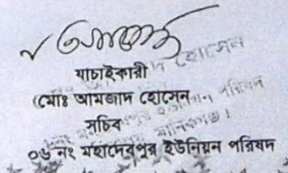 যাচাইকারী
(মোঃ আমজাদ হোসেন
সচিব
০৬ নং মহাদেবপুর ইউনিয়ন পরিষদ